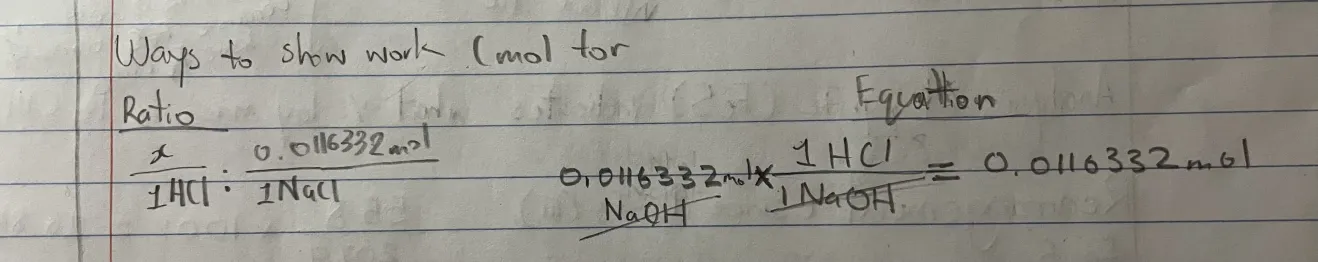 Ways to show work (mol for
Ratio
Equation
x / 1HCl : 0.0116332mol / 1NaCl
0.0116332mol NaOH x 1HCl / 1NaOH = 0.0116332mol